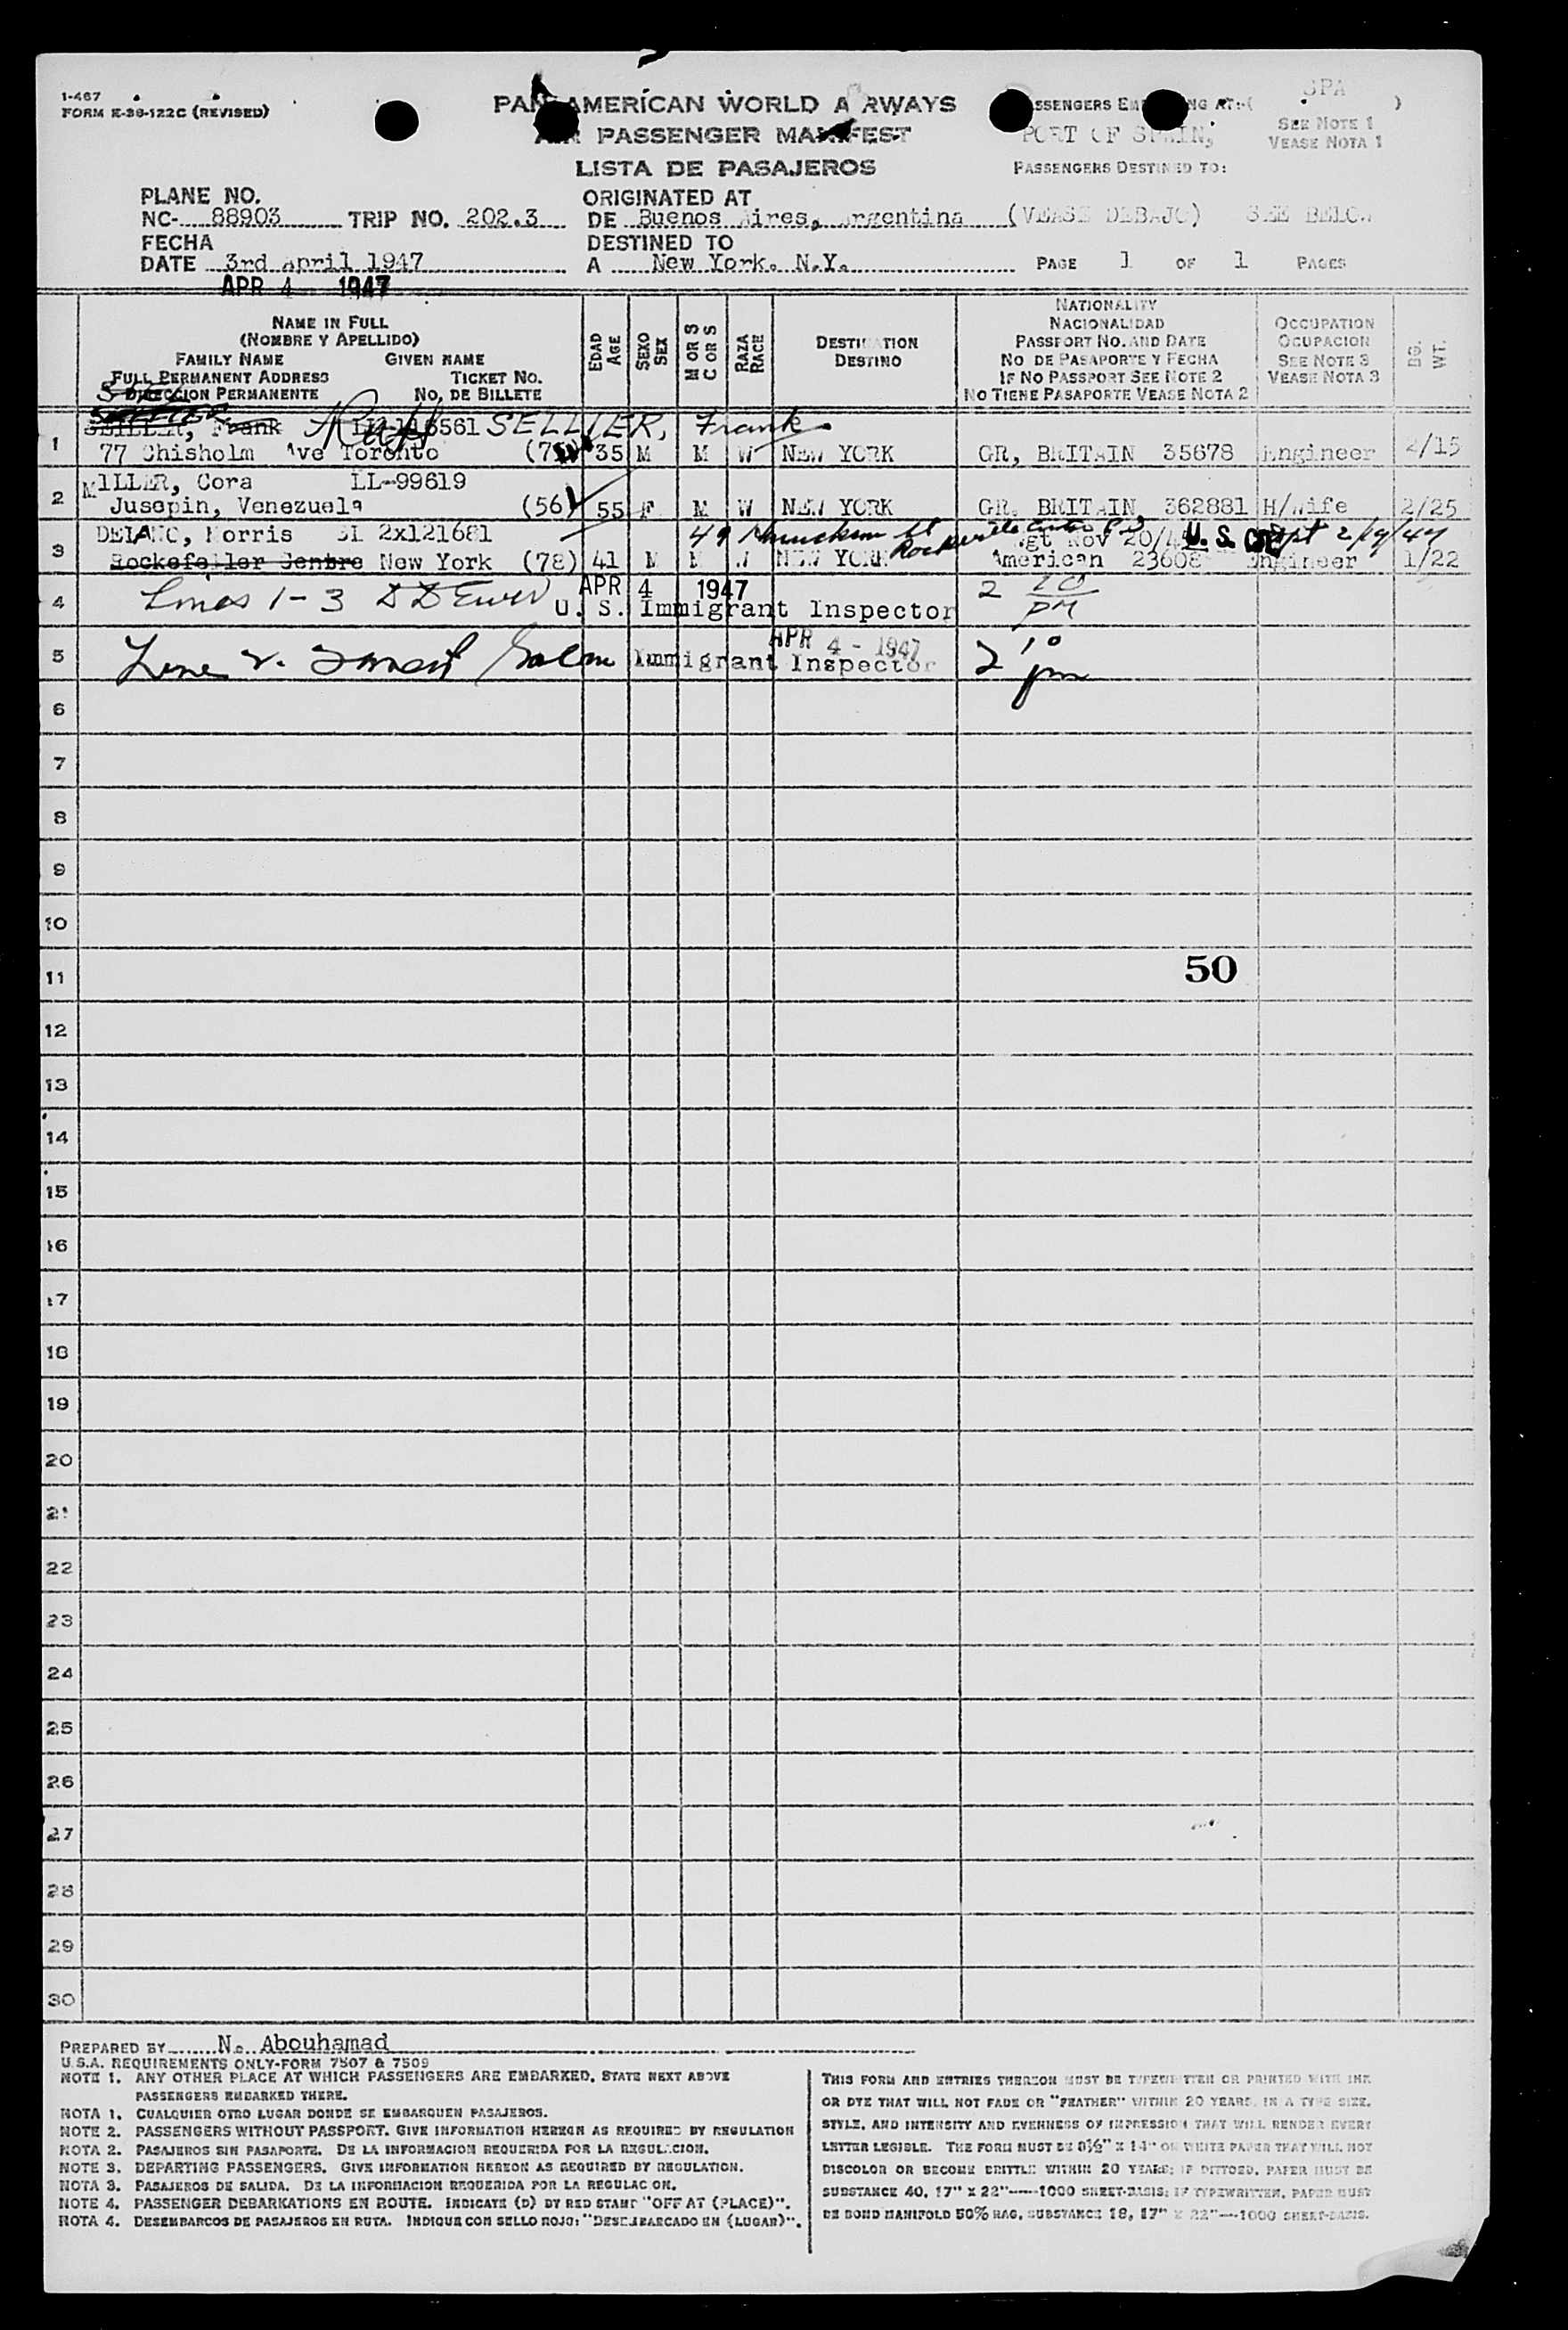 1-467
FORM E-36-122C (REVISED)
PAN AMERICAN WORLD AIRWAYS
AIR PASSENGER MANIFEST
LISTA DE PASAJEROS
PASSENGERS EMBARKING AT:- ( SPA )
PORT OF SPAIN,
SEE NOTE 1
VEASE NOTA 1
PASSENGERS DESTINED TO:
(VEASE DEBAJO) SEE BELOW
PLANE NO.
NC- 88903 TRIP NO. 202.3
ORIGINATED AT
DE Buenos Aires, Argentina
FECHA
DATE 3rd April 1947
APR 4 1947
DESTINED TO
A New York. N.Y.
PAGE 1 OF 1 PAGES
NAME IN FULL
(NOMBRE Y APELLIDO)
FAMILY NAME GIVEN NAME
FULL PERMANENT ADDRESS TICKET NO.
DIRECCION PERMANENTE NO. DE BILLETE
EDAD AGE
SEXO SEX
M OR S C OR S
RAZA RACE
DESTINATION
DESTINO
NATIONALITY
NACIONALIDAD
PASSPORT NO. AND DATE
NO DE PASAPORTE Y FECHA
IF NO PASSPORT SEE NOTE 2
NO TIENE PASAPORTE VEASE NOTA 2
OCCUPATION
OCUPACION
SEE NOTE 3
VEASE NOTA 3
BG. WT.
1 Frank SELLIER, Frank
77 Chisholm Ave Toronto 35 M M W NEW YORK GR, BRITAIN 35678 Engineer 2/15
2 MILLER, Cora LL-99619
Jusepin, Venezuela (56) 55 F M W NEW YORK GR. BRITAIN, 362881 H/wife 2/25
3 DELANO, Morris 2x121681 49 St Rockville Centre Nov 20/4 U. S. CIT
Rockefeller Centre New York (78) 41 M M W NEW YORK American 23608 Engineer 1/22
4 Lines 1-3 APR 4 1947 U. S. Immigrant Inspector 2 20 PM
5 Line 2. Immigrant Inspector APR 4 - 1947 2 10 pm
6
7
8
9
10
11 50
12
13
14
15
16
17
18
19
20
21
22
23
24
25
26
27
28
29
30
PREPARED BY N. Abouhamad
U.S.A. REQUIREMENTS ONLY-FORM 7507 & 7509
NOTE 1. ANY OTHER PLACE AT WHICH PASSENGERS ARE EMBARKED, STATE NEXT ABOVE
PASSENGERS EMBARKED THERE.
NOTA 1. CUALQUIER OTRO LUGAR DONDE SE EMBARQUEN PASAJEROS.
NOTE 2. PASSENGERS WITHOUT PASSPORT. GIVE INFORMATION HEREON AS REQUIRED BY REGULATION
NOTA 2. PASAJEROS SIN PASAPORTE. DE LA INFORMACION REQUERIDA POR LA REGULACION.
NOTE 3. DEPARTING PASSENGERS. GIVE INFORMATION HEREON AS REQUIRED BY REGULATION.
NOTA 3. PASAJEROS DE SALIDA. DE LA INFORMACION REQUERIDA POR LA REGULACION.
NOTE 4. PASSENGER DEBARKATIONS EN ROUTE. INDICATE (D) BY RED STAMP "OFF AT (PLACE)".
NOTA 4. DESEMBARCOS DE PASAJEROS EN RUTA. INDIQUE CON SELLO ROJO: "DESEMBARCADO EN (LUGAR)".
THIS FORM AND ENTRIES THEREON MUST BE TYPEWRITTEN OR PRINTED WITH INK
OR DYE THAT WILL NOT FADE OR "FEATHER" WITHIN 20 YEARS, IN A TYPE SIZE,
STYLE, AND INTENSITY AND EVENNESS OF IMPRESSION THAT WILL RENDER EVERY
LETTER LEGIBLE. THE FORM MUST BE 8½" X 14" ON WHITE PAPER THAT WILL NOT
DISCOLOR OR BECOME BRITTLE WITHIN 20 YEARS; IF DITTOED, PAPER MUST BE
SUBSTANCE 40, 17" X 22"----1000 SHEET-BASIS; IF TYPEWRITTEN, PAPER MUST
BE BOND MANIFOLD 50% RAG, SUBSTANCE 18, 17" X 22"---1000 SHEET-BASIS.